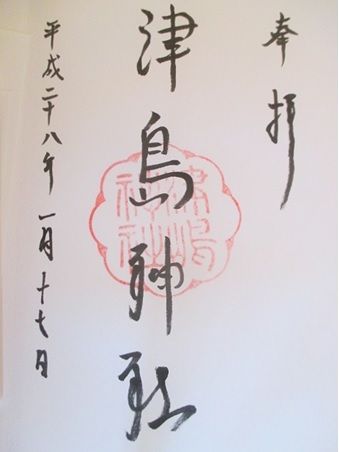 奉拝
津島神社
津嶋神社
平成二十八年一月十七日